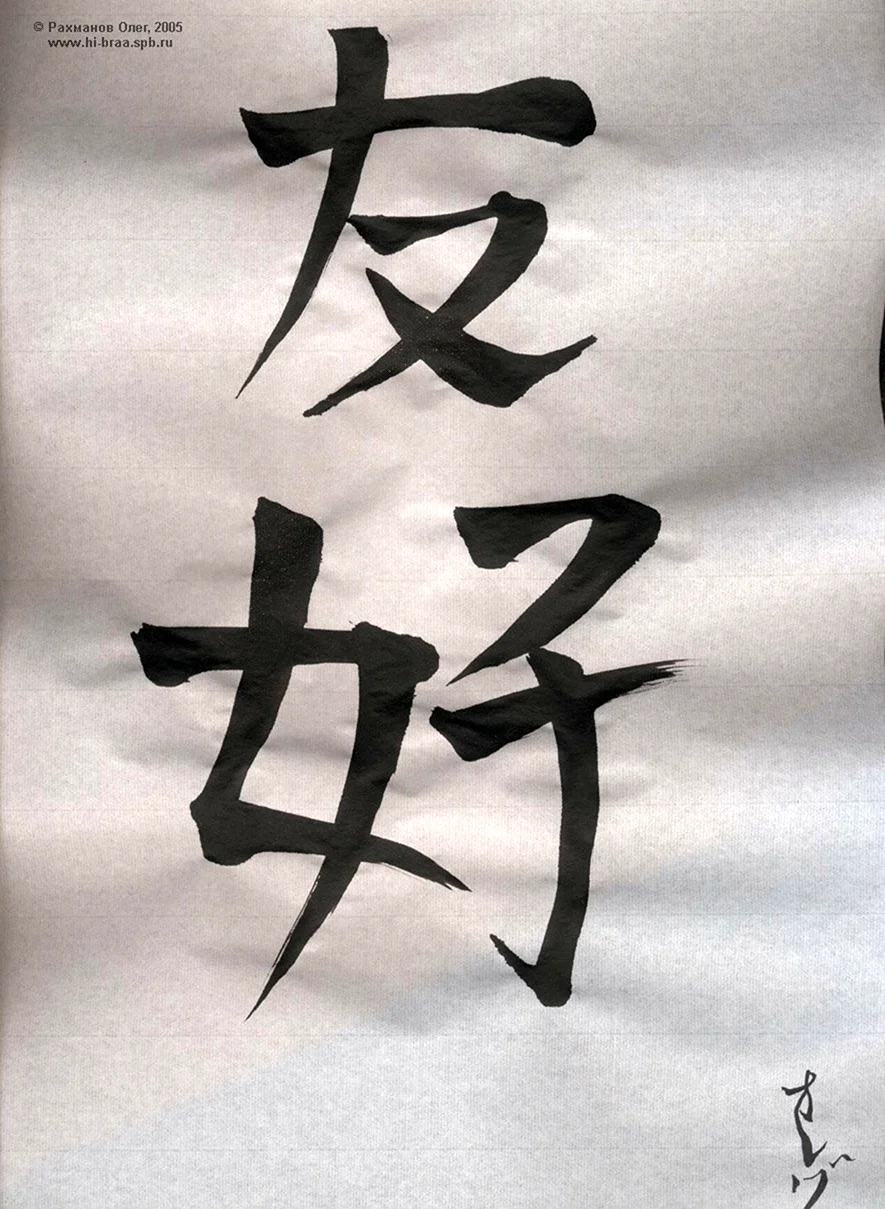 © Рахманов Олег, 2005
www.hi-braa.spb.ru
友
好
オレグ